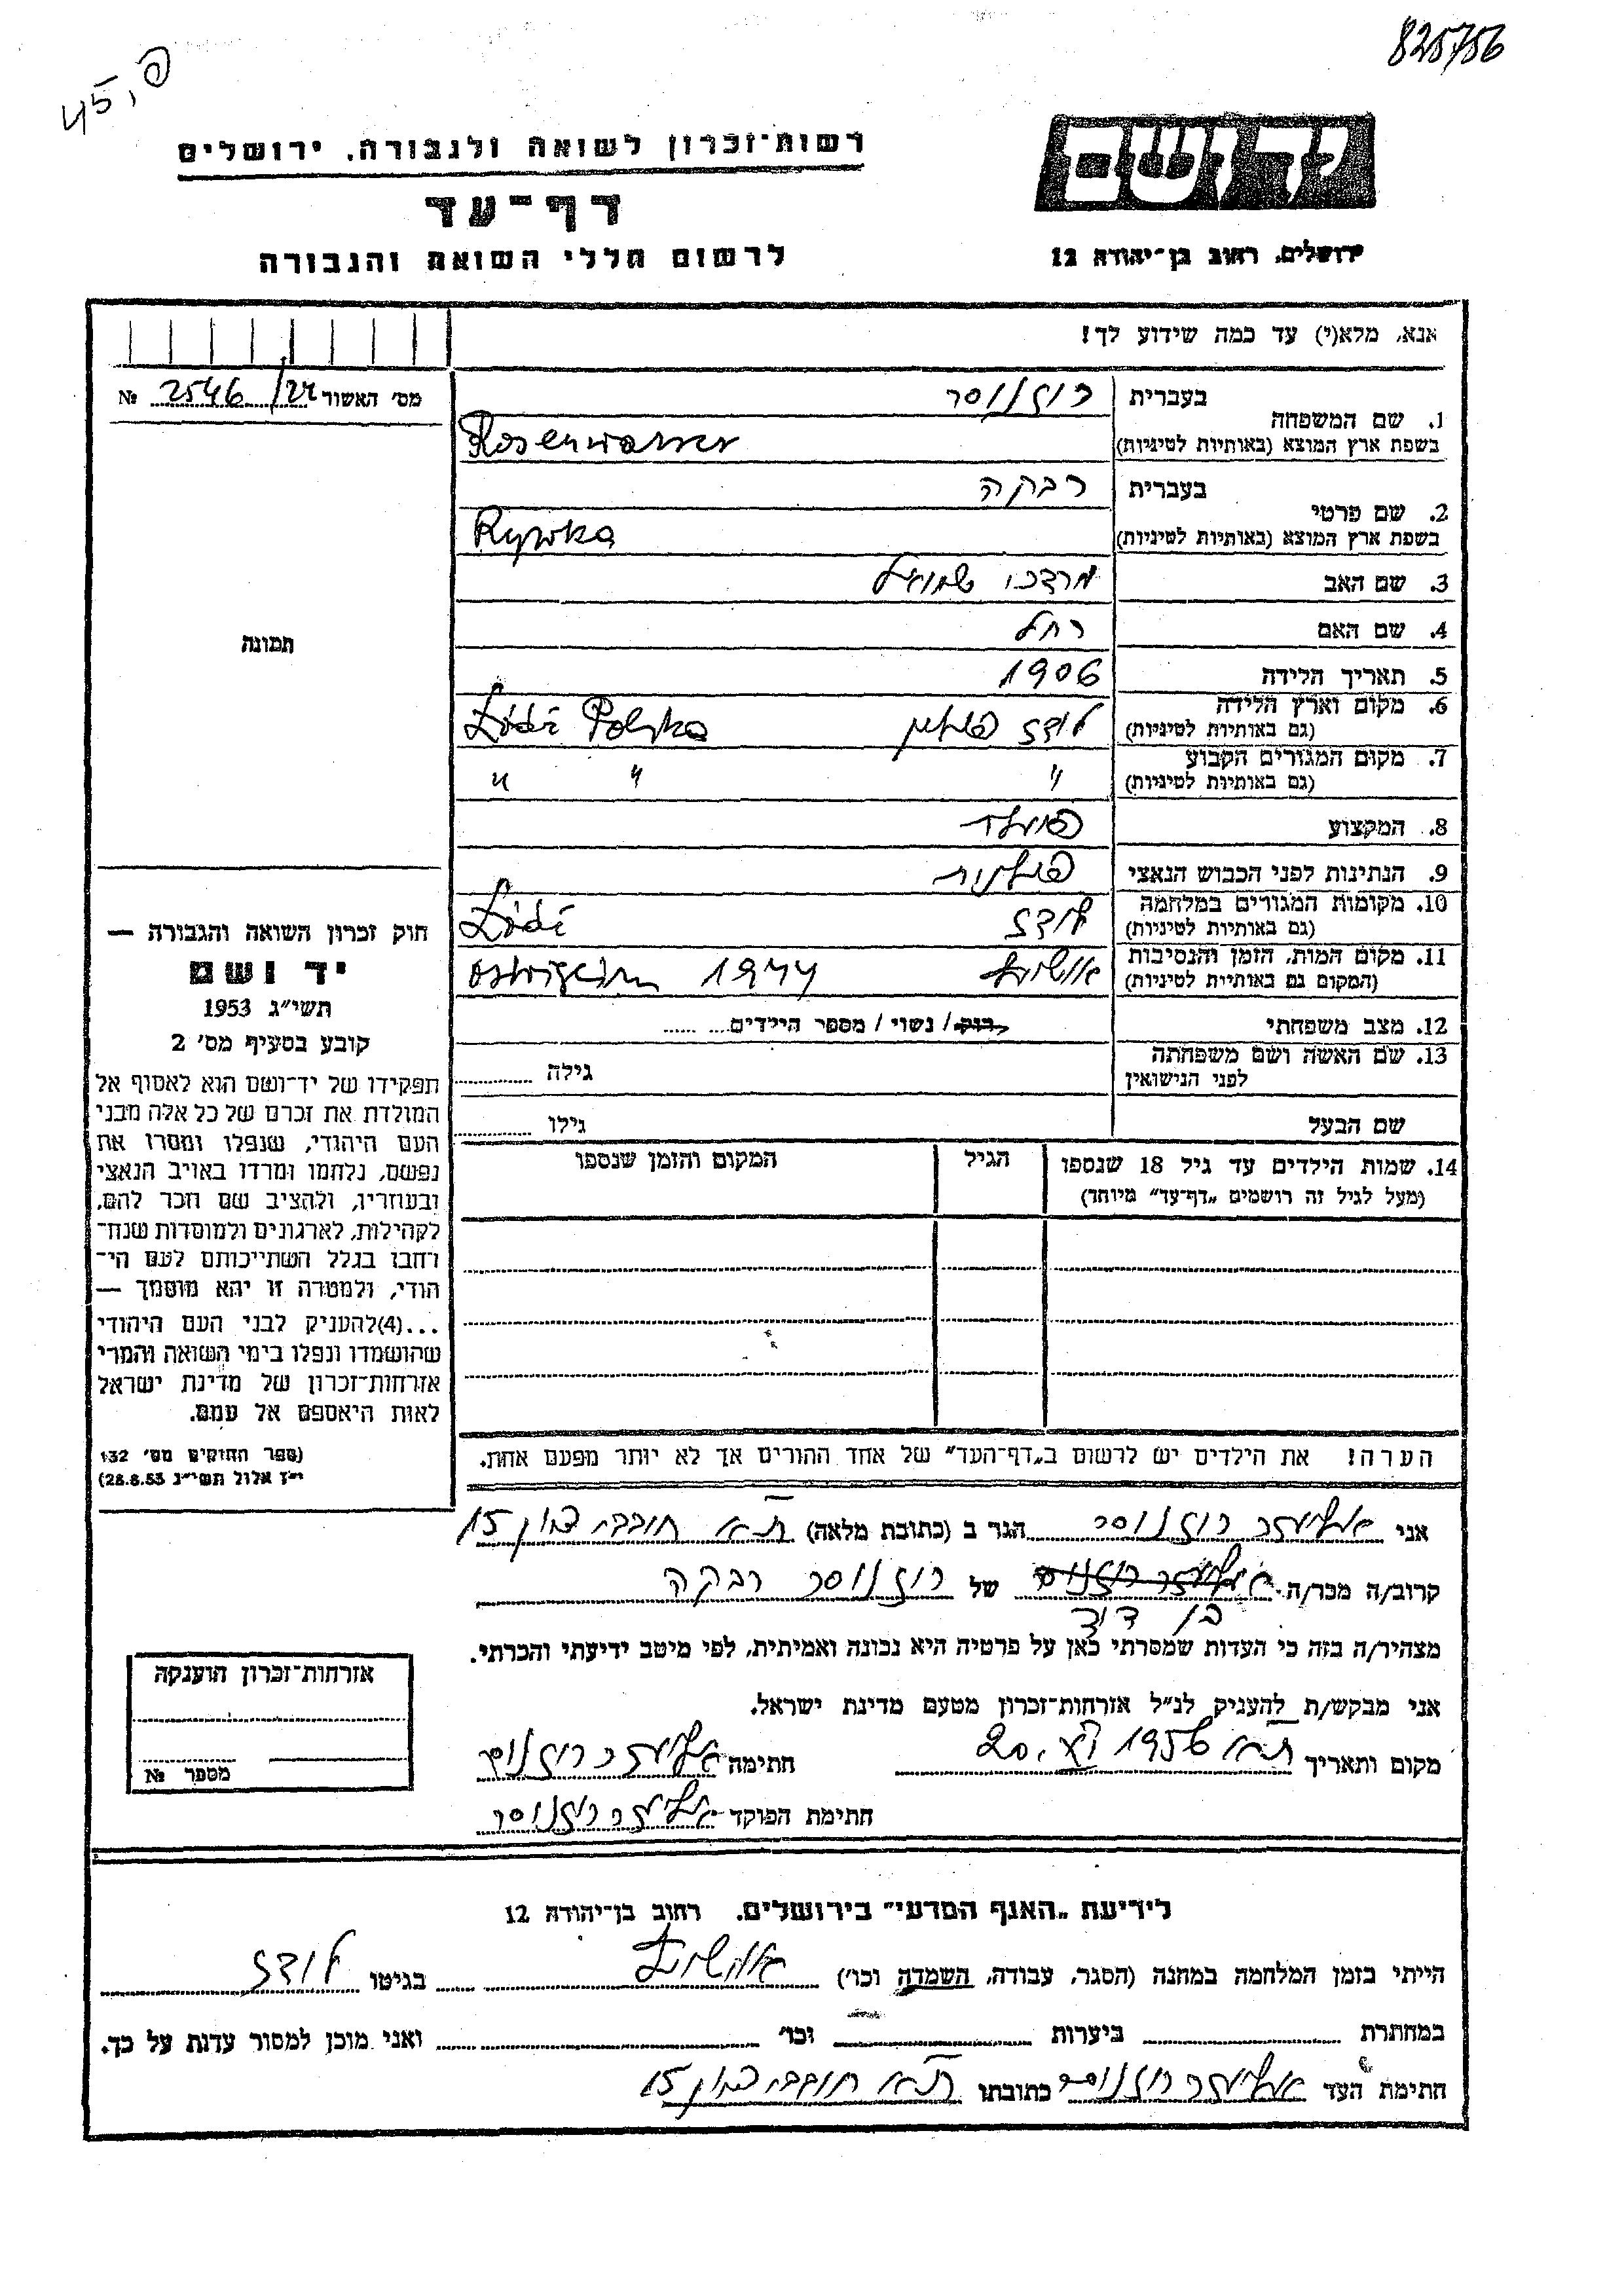 825756
45,פ
יד ושם
ירושלים, רחוב בן־יהודה 12
רשות־זכרון לשואה ולגבורה, ירושלים
דף־עד
לרשום חללי השואה והגבורה
אנא, מלא(י) עד כמה שידוע לך!
מס' האשור 2546/22 №
תמונה
1. שם המשפחה
בעברית רוזנוסר
בשפת ארץ המוצא (באותיות לטיניות) Rosenwasser
2. שם פרטי
בעברית רבקה
בשפת ארץ המוצא (באותיות לטיניות) Rywka
3. שם האב מרדכי שמואל
4. שם האם רחל
5. תאריך הלידה 1906
6. מקום וארץ הלידה
(גם באותיות לטיניות) לודז פולין Łódź Polska
7. מקום המגורים הקבוע
(גם באותיות לטיניות) " " "
8. המקצוע
9. הנתינות לפני הכבוש הנאצי פולנית
10. מקומות המגורים במלחמה
(גם באותיות לטיניות) לודז Łódź
11. מקום המות, הזמן והנסיבות
(המקום גם באותיות לטיניות) אושויץ 1944
12. מצב משפחתי רוק / נשוי / מספר הילדים.... ......
13. שם האשה ושם משפחתה
לפני הנישואין גילה
שם הבעל גילו
14. שמות הילדים עד גיל 18 שנספו
(מעל לגיל זה רושמים „דף־עד" מיוחד)
הגיל
המקום והזמן שנספו
הערה! את הילדים יש לרשום ב„דף־העד" של אחד ההורים אך לא יותר מפעם אחת.
חוק זכרון השואה והגבורה —
יד ושם
תשי״ג 1953
קובע בסעיף מס' 2
תפקידו של יד־ושם הוא לאסוף אל
המולדת את זכרם של כל אלה מבני
העם היהודי, שנפלו ומסרו את
נפשם, נלחמו ומרדו באויב הנאצי
ובעוזריו, ולהציב שם וזכר להם,
לקהילות, לארגונים ולמוסדות שנח־
רחבו בגלל השתייכותם לעם הי־
הודי, ולמטרה זו יהא מוסמך —
...(4)להעניק לבני העם היהודי
שהושמדו ונפלו בימי השואה והמרי
אזרחות־זכרון של מדינת ישראל
לאות היאספם אל עמם.
(ספר החוקים מס' 132
י״ז אלול תשי״ג 28.8.53)
אני אליעזר רוזנוסר הגר ב (כתובת מלאה) ת״א חובבי ציון 15
קרוב/ה מכר/ה אליעזר רוזנוסר של רוזנוסר רבקה
בן דוד
מצהיר/ה בזה כי העדות שמסרתי כאן על פרטיה היא נכונה ואמיתית, לפי מיטב ידיעתי והכרתי.
אני מבקש/ת להעניק לנ״ל אזרחות־זכרון מטעם מדינת ישראל.
מקום ותאריך ת״א 1956 20. חתימה אליעזר רוזנוסר
חתימת הפוקד אליעזר רוזנוסר
אזרחות־זכרון הוענקה
מספר №
לידיעת „האגף המדעי" בירושלים, רחוב בן־יהודה 12
הייתי בזמן המלחמה במחנה (הסגר, עבודה, השמדה וכו') אושויץ בגיטו לודז
במחתרת ביערות וכו' ואני מוכן למסור עדות על כך.
חתימת העד אליעזר רוזנוסר כתובתו ת״א חובבי ציון 15